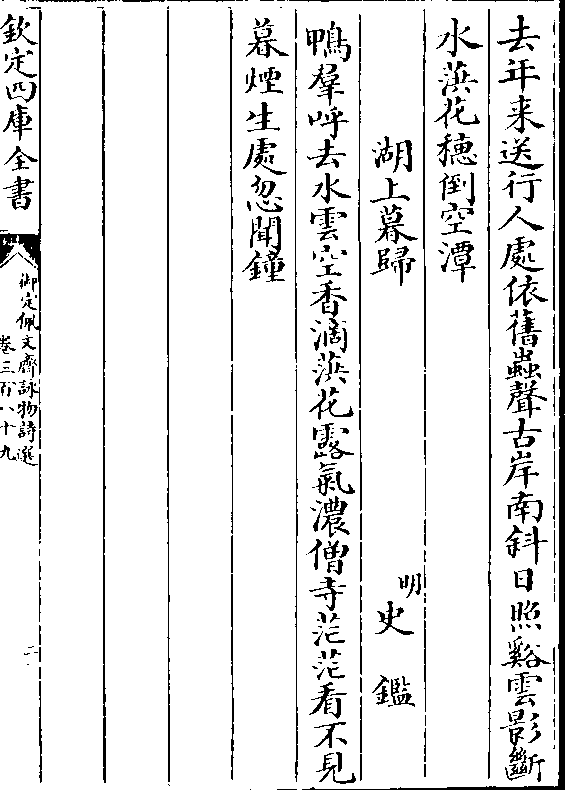 去年来送行人處依舊蟲聲古岸南斜日照谿雲影斷
水葓花穗倒空潭
湖上暮歸
明史鑑
鴨羣呼去水雲空香滴葓花露氣濃僧寺茫茫看不見
暮煙生處忽聞鐘
欽定四庫全書
御定佩文齋詠物詩選
卷三百八十九
二